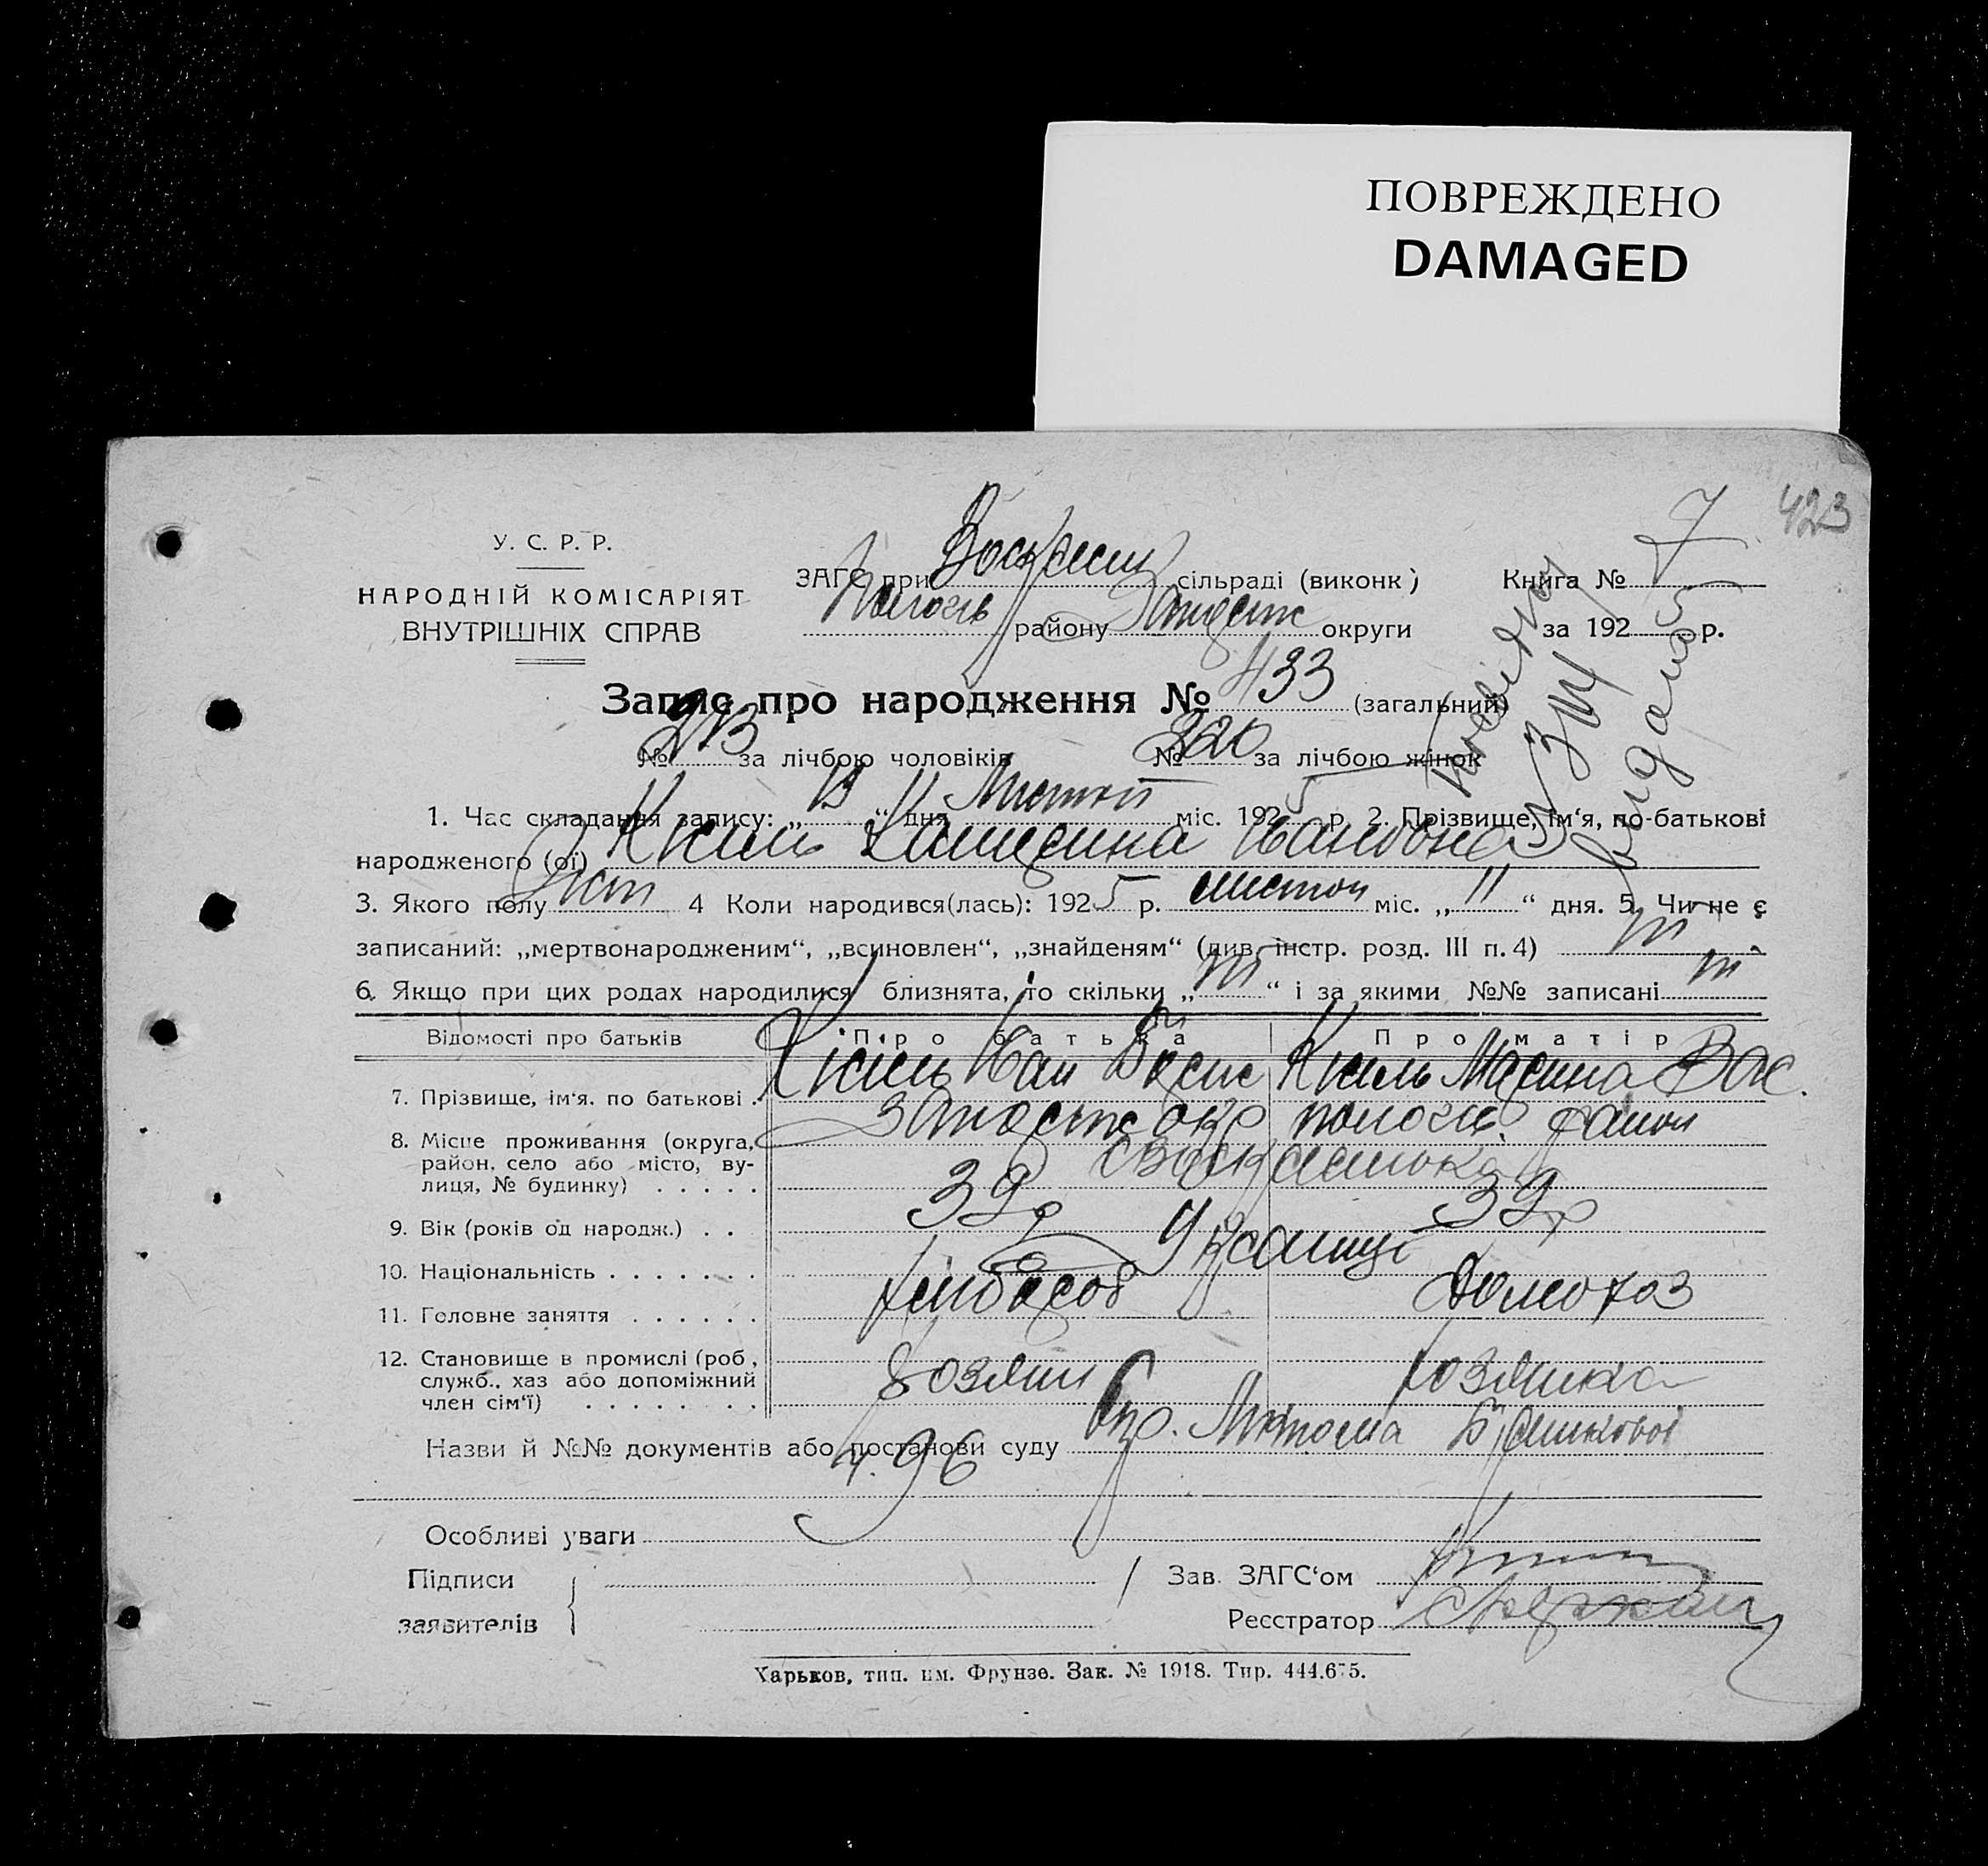 ПОВРЕЖДЕНО
DAMAGED
423
У. С. Р. Р.
НАРОДНІЙ КОМІСАРІЯТ
ВНУТРІШНІХ СПРАВ
ЗАГС при Воскресен сільраді (виконк)
Пологів району Запорізьк округи
Книга № 7
за 1925 р.
Запис про народження № 433 (загальний)
№ 213 за лічбою чоловіків № 220 за лічбою жінок
1. Час складання запису: „13“ дня Листоп міс. 1925 р. 2. Прізвище, ім‘я, по-батькові
народженого (ої) Кисіль Катерина Іванівна
3. Якого полу жін 4 Коли народився(лась): 1925 р. листоп міс. „11“ дня. 5. Чи не є
записаний: „мертвонародженим“, „всиновлен“, „знайденям“ (див. інстр. розд. III п. 4) ні
6. Якщо при цих родах народилися близнята, то скільки „ні“ і за якими №№ записані ні
Відомості про батьків Про батька Про матір
7. Прізвище, ім‘я. по батькові . Кисіль Іван Кисіль Марина Вас.
8. Місце проживання (округа,
район, село або місто, ву-
лиця, № будинку) . . . . .
окр Пологів. район
9. Вік (років од народж.) . . 39р 39р
10. Національність . . . . . . . Українці
11. Головне заняття . . . . . . хлібороб домохоз
12. Становище в промислі (роб.,
служб., хаз або допоміжний
член сім‘ї) . . . . . . . .
хозяин хозяйка
Назви й №№ документів або постанови суду
ч. 96
Особливі уваги
Підписи
заявителів
Зав. ЗАГС‘ом
Реєстратор
Харьков, тип. им. Фрунзе. Зак. № 1918. Тир. 444.675.